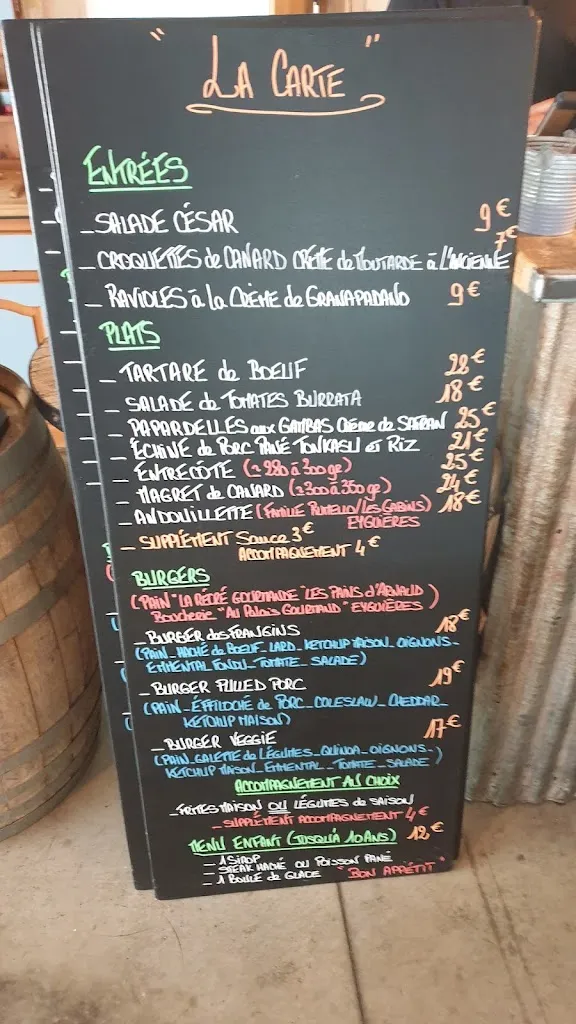 " LA CARTE "
ENTRÉES
_ SALADE CÉSAR 9€
_ CROQUETTES de CANARD CRÈME de MOUTARDE à L'ANCIENNE 7€
_ RAVIOLES à la CRÈME de GRANAPADANO 9€
PLATS
_ TARTARE de BOEUF 22€
_ SALADE de TOMATES BURRATA 18€
_ PAPARDELLES aux GAMBAS CRÈME de SAFRAN 25€
_ ÉCHINE de PORC PANÉ TONKASU et RIZ 21€
_ ENTRECÔTE (≈ 280 à 300 gr) 25€
_ MAGRET de CANARD (≈ 300 à 350 gr) 24€
_ ANDOUILLETTE (FAMILLE /LES GABINS) 18€
EYGUIÈRES
_ SUPPLÉMENT Sauce 3€
ACCOMPAGNEMENT 4€
BURGERS
(PAIN "LA RÉCRÉ GOURMANDE" LES PAINS d'ARNAUD)
Boucherie "AU PALAIS GOURMAND" EYGUIÈRES
_ BURGER des FRANGINS 18€
(PAIN_HACHÉ de BOEUF_LARD_KETCHUP MAISON_OIGNONS_
EMMENTAL FONDU_TOMATE_SALADE)
_ BURGER PULLED PORC 19€
(PAIN_EFFILOCHÉ de PORC_COLESLAW_CHEDDAR_
KETCHUP MAISON)
_ BURGER VEGGIE 17€
(PAIN_GALETTE de LÉGUMES_QUINOA_OIGNONS_
KETCHUP MAISON_EMMENTAL_TOMATE_SALADE)
ACCOMPAGNEMENT AU CHOIX
_ FRITES MAISON OU LÉGUMES de SAISON
_ SUPPLÉMENT ACCOMPAGNEMENT 4€
MENU ENFANT (JUSQU'À 10 ANS) 12€
_ 1 SIROP
_ STEAK HACHÉ OU POISSON PANÉ
_ 1 BOULE de GLACE "BON APPÉTIT"